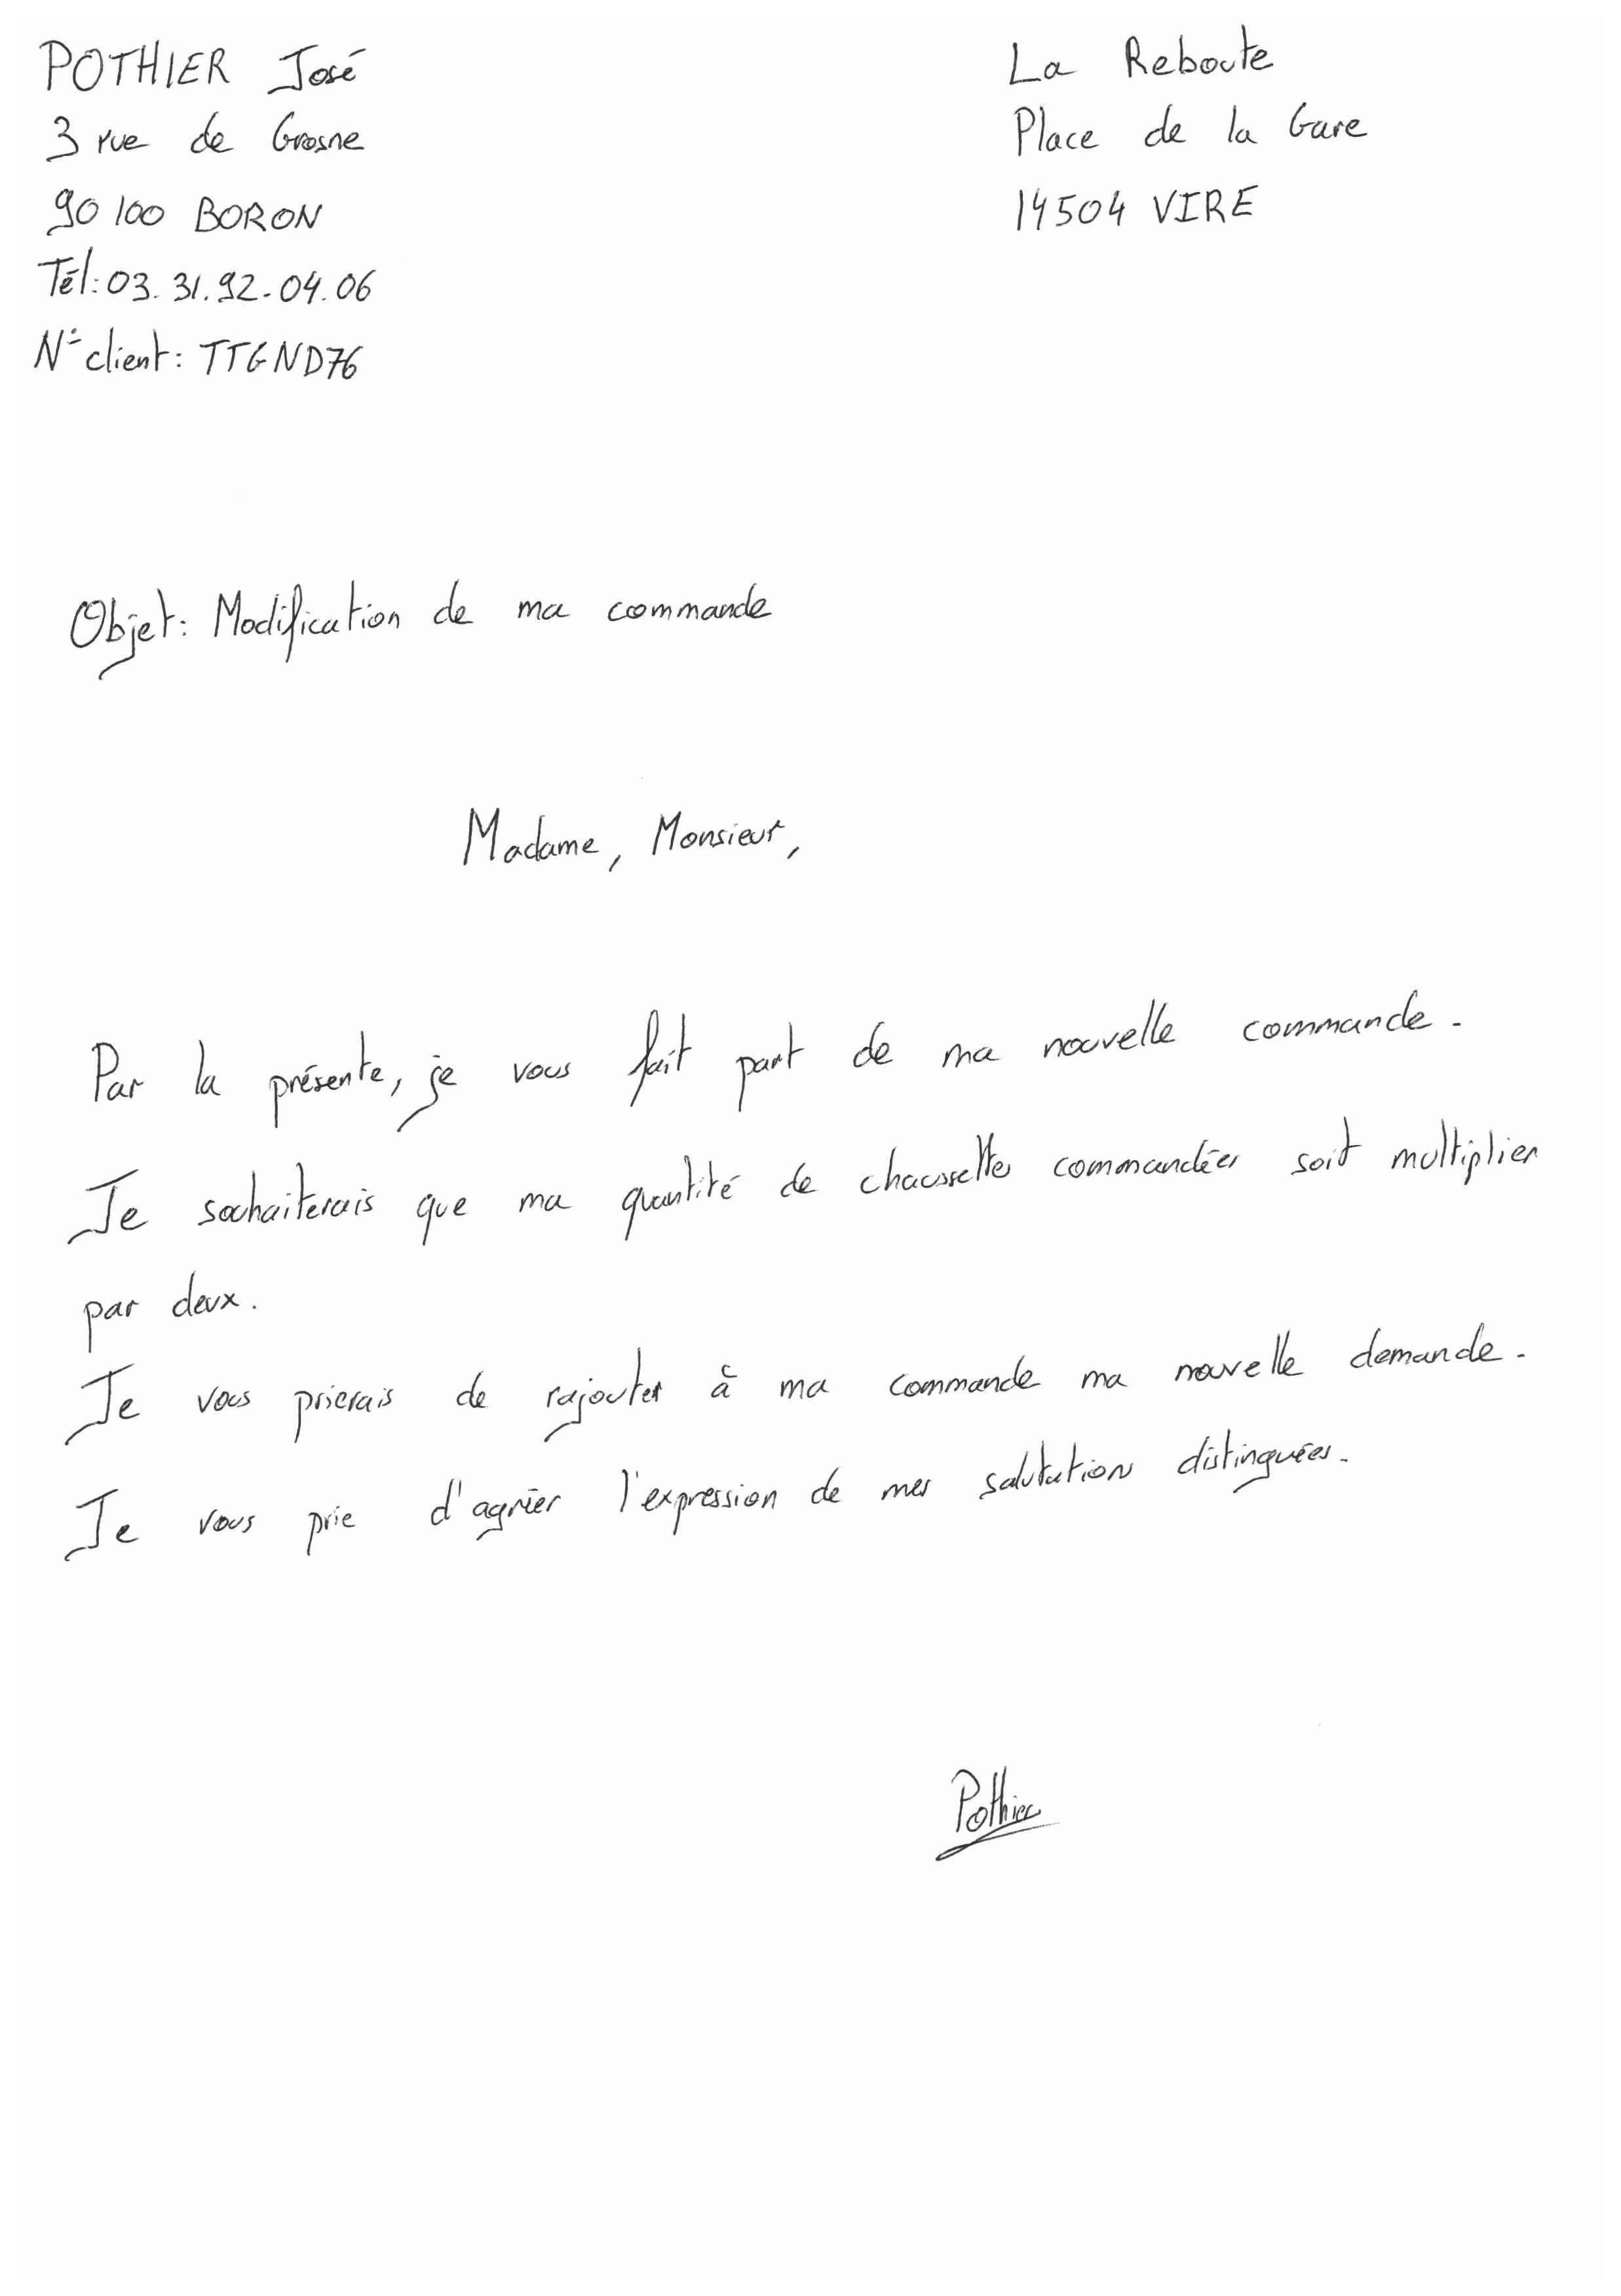 POTHIER José
3 rue de Grosne
90 100 BORON
Tél: 03.31.92.04.06
N° client: TTGND76
La Reboute
Place de la Gare
14504 VIRE
Objet: Modification de ma commande
Madame, Monsieur,
Par la présente, je vous fait part de ma nouvelle commande.
Je souhaiterais que ma quantité de chaussettes commandées soit multiplier
par deux.
Je vous prierais de rajouter à ma commande ma nouvelle demande.
Je vous prie d'agréer l'expression de mes salutations distinguées.
Pothier